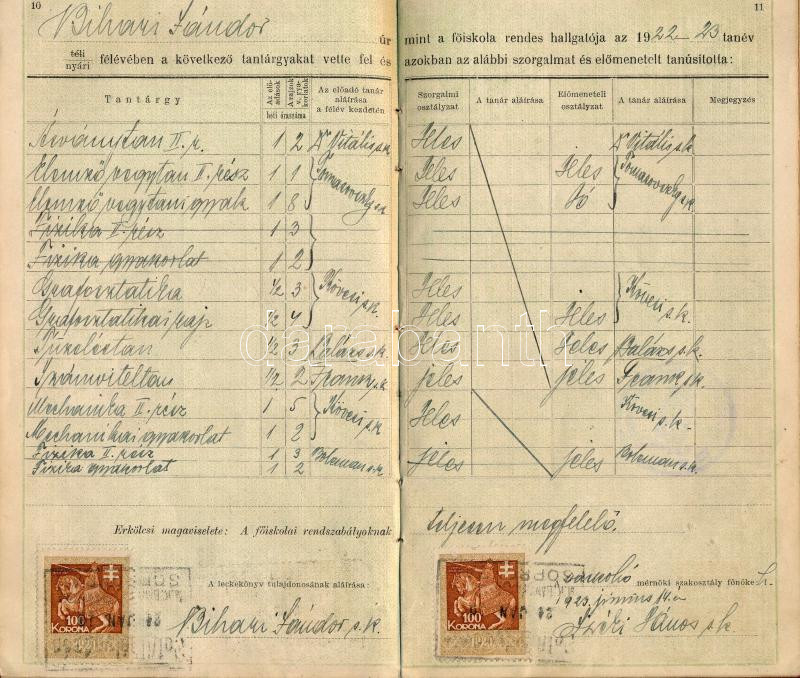 10
Bihari Sándor úr
téli
nyári félévében a következő tantárgyakat vette fel és
Tantárgy
Az elő-
adások
A rajzok
v. gya-
korlatok
heti óraszáma
Az előadó tanár
aláírása
a félév kezdetén
Ásványtan II. r. 1 2 Dr Vitális s.k.
Elemző vegytan II. rész 1 1 Tomasovszky s.k.
Elemző vegytani gyak 1 8
Fizika II. rész 1 3
Fizika gyakorlat 1 2
Grafosztatika 1/2 3 Kövesi s.k.
Grafosztatikai rajz 1/2 4
Tüzeléstan 1/2 3 Balázs s.k.
Számviteltan 1/2 2 Frank s.k.
Mechanika II. rész 1 5 Kövesi s.k.
Mechanikai gyakorlat 1 2
Fizika II. rész 1 3 Boleman s.k.
Fizika gyakorlat 1 2
Erkölcsi magaviselete: A főiskolai rendszabályoknak
A leckekönyv tulajdonosának aláírása:
Bihari Sándor s.k.
100
KORONA
11
mint a főiskola rendes hallgatója az 1922–23 tanév
azokban az alábbi szorgalmat és előmenetelt tanúsította:
Szorgalmi
osztályzat
A tanár aláírása
Előmeneteli
osztályzat
A tanár aláírása
Megjegyzés
Jeles Dr Vitális s.k.
Jeles Jeles Tomasovszky s.k.
Jeles Jó
Jeles Kövesi s.k.
Jeles Jeles
Jeles Jeles Balázs s.k.
jeles jeles Frank s.k.
Jeles Kövesi s.k.
jeles jeles Boleman s.k.
teljesen megfelelő.
mérnöki szakosztály főnöke
1923. június
János s.k.
100
KORONA
SOPR
24 JAN
darabanth